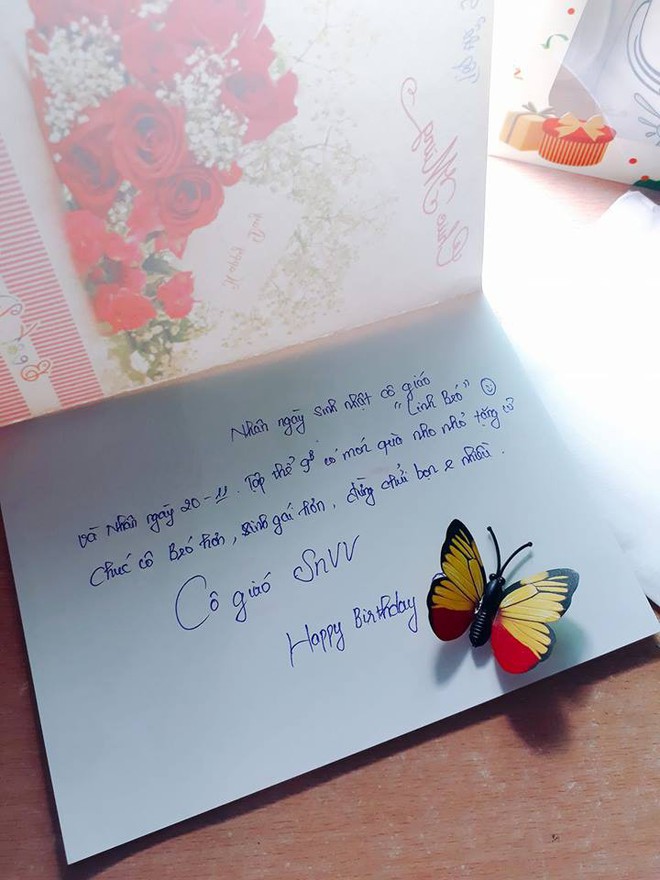 Chúc Mừng
Nhân ngày sinh nhật cô giáo
"Linh Béo" ☺
và Nhân ngày 20-11. Tập thể 9⁸ có món quà nho nhỏ tặng cô
Chúc cô Béo hơn, xinh gái hơn, đừng chửi bọn e nhiều.
Cô giáo SnVV
Happy Birthday